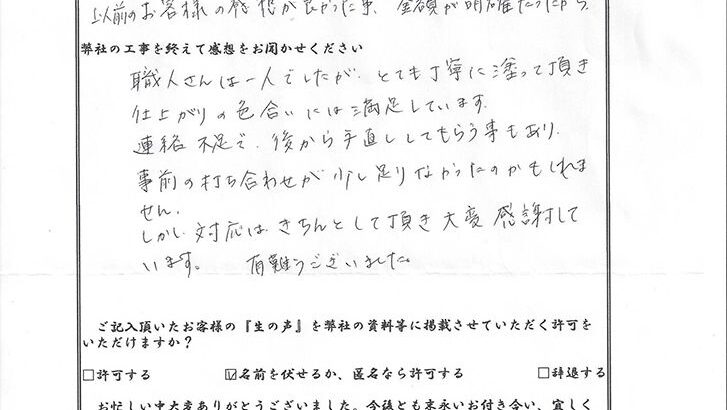 以前のお客様の感想が良かった事、金額が明確だったから
弊社の工事を終えて感想をお聞かせください
職人さんは一人でしたが、とても丁寧に塗って頂き
仕上がりの色合いには満足しています。
連絡不足で、後から手直ししてもらう事もあり、
事前の打ち合わせが少し足りなかったのかもしれま
せん。
しかし対応はきちんとして頂き大変感謝して
います。 有難うございました。
ご記入頂いたお客様の『生の声』を弊社の資料等に掲載させていただく許可を
いただけますか？
□許可する ☑名前を伏せるか、匿名なら許可する □辞退する
お忙しい中大変ありがとうございました。今後とも末永いお付き合い、宜しく